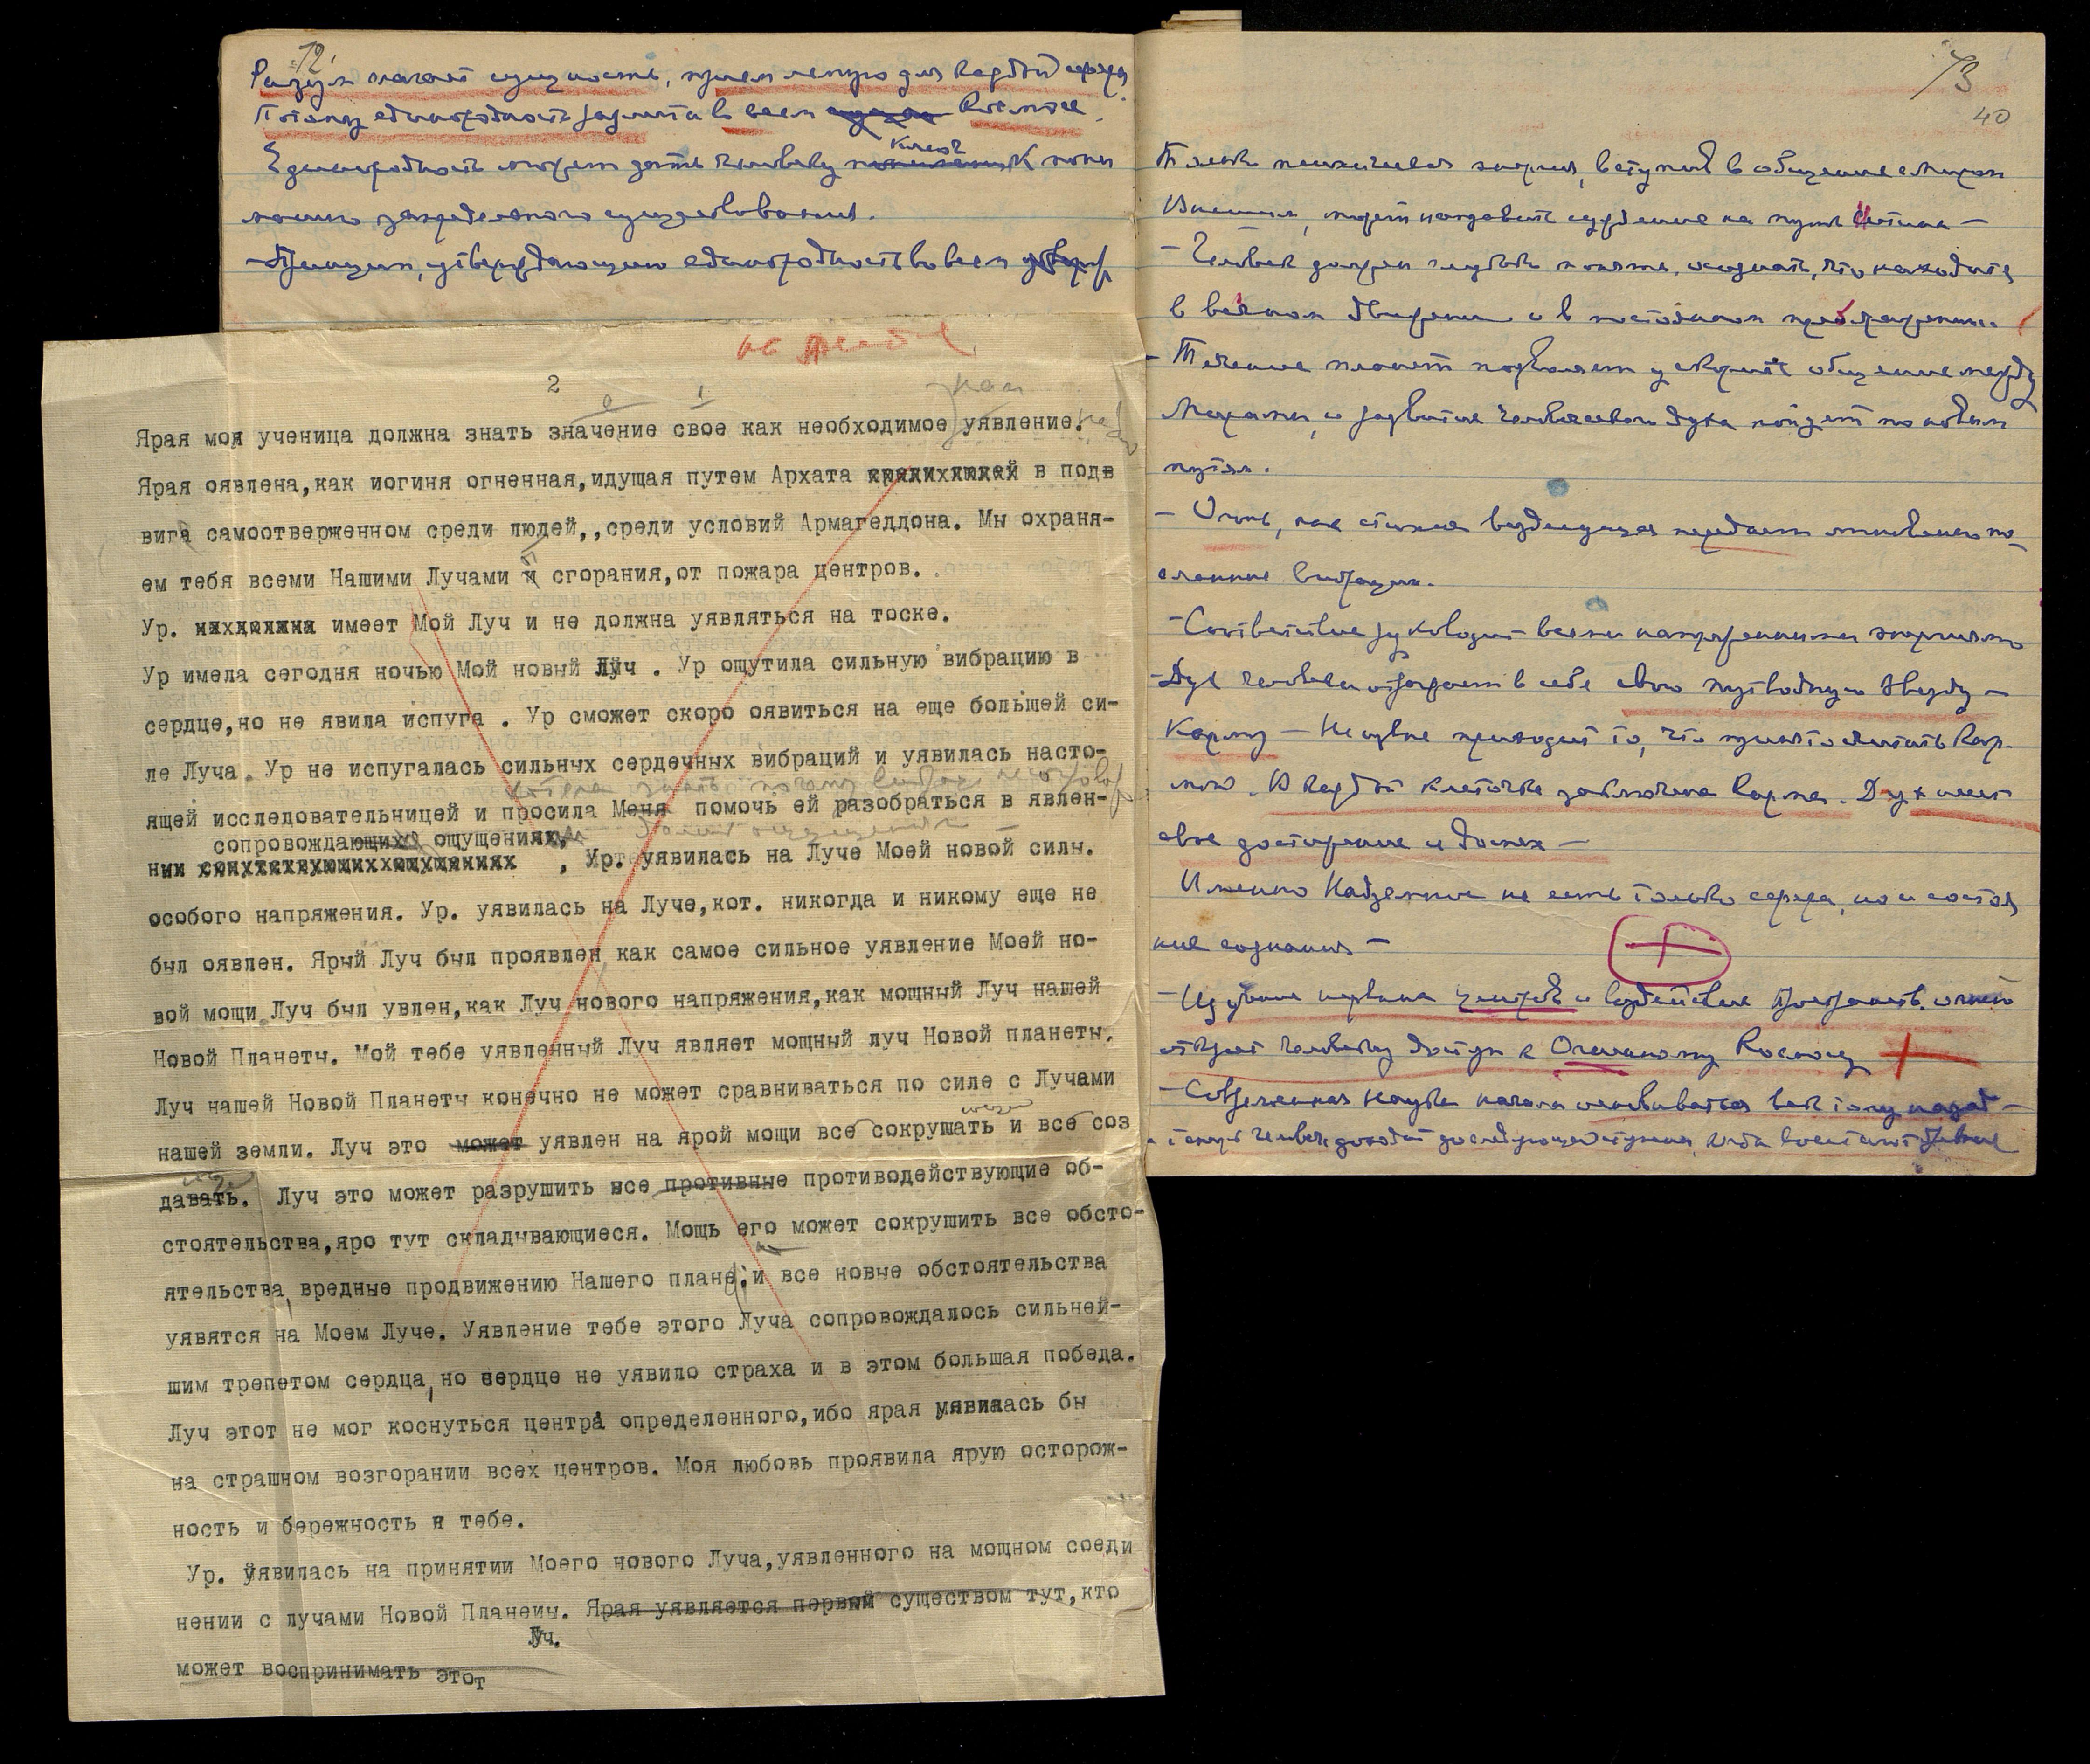 72
Разум
Потому единородность во всем Космосе.
Ключ
Единородность может дать человеку К пони
манию запредельного существования.
единородность во всем
не
2
Ярая моя ученица должна знать значение свое как необходимое уявление.
Ярая оявлена,как иогиня огненная,идущая путем Архата в подв
вига самоотверженном среди людей,,среди условий Армагеддона. Мы охраня-
ем тебя всеми Нашими Лучами и сгорания,от пожара центров.
Ур. имеет Мой Луч и не должна уявляться на тоске.
Ур имела сегодня ночью Мой новый Луч . Ур ощутила сильную вибрацию в
сердце,но не явила испуга . Ур сможет скоро оявиться на еще большей си-
ле Луча. Ур не испугалась сильных сердечных вибраций и уявилась насто-
ящей исследовательницей и просила Меня помочь ей разобраться в явлен-
сопровождающих ощущениях,
нии сопутствующих ощущениях , Ур. уявилась на Луче Моей новой силы.
особого напряжения. Ур. уявилась на Луче,кот. никогда и никому еще не
был оявлен. Ярый Луч был проявлен как самое сильное уявление Моей но-
вой мощи Луч был увлен,как Луч нового напряжения,как мощный Луч нашей
Новой Планеты. Мой тебе уявленный Луч являет мощный луч Новой планеты.
Луч нашей Новой Планеты конечно не может сравниваться по силе с Лучами
нашей земли. Луч это может уявлен на ярой мощи все сокрушать и все соз
давать. Луч это может разрушить все противные противодействующие об-
стоятельства,яро тут складывающиеся. Мощь его может сокрушить все обсто-
ятельства, вредные продвижению Нашего плана, и все новые обстоятельства
уявятся на Моем Луче. Уявление тебе этого Луча сопровождалось сильней-
шим трепетом сердца, но сердце не уявило страха и в этом большая победа.
Луч этот не мог коснуться центра определенного,ибо ярая уявилась бы
на страшном возгорании всех центров. Моя любовь проявила ярую осторож-
ность и бережность к тебе.
Ур. уявилась на принятии Моего нового Луча,уявленного на мощном соеди
нении с лучами Новой Планеиы. Ярая уявляется первый существом тут,кто
Луч.
может воспринимать этот
73
40
Только психическая энергия, вступив в общение с Миром
Высшим, может направить суждение на пути Истины —
— Человек должен глубоко понять, осознать, что находится
в вечном движении и в постоянном преображении.
— Течение планет позволяет ускорить общение между
Мирами, и развитие человеческого духа пойдет по новым
путям.
— Огонь, как стихия вездесущая передает мгновенно по-
сланные вибрации.
— Соответствие руководит всеми напряженными энергиями
— Дух человека отражает в себе свою путеводную Звезду —
Карму — приводит то, что принято считать Кар-
мою. В каждой клеточке заключена карма. Дух имеет
свое достижение и доспех —
Именно Надземное не есть только сфера, но и состоя
ние сознания —
— Изучение нервных центров и воздействие Пространств. огней
откроет человеку доступ к Огненному Космосу
— Современная Наука начала основываться век тому назад —
теперь человек доходит до следующей ступени, когда